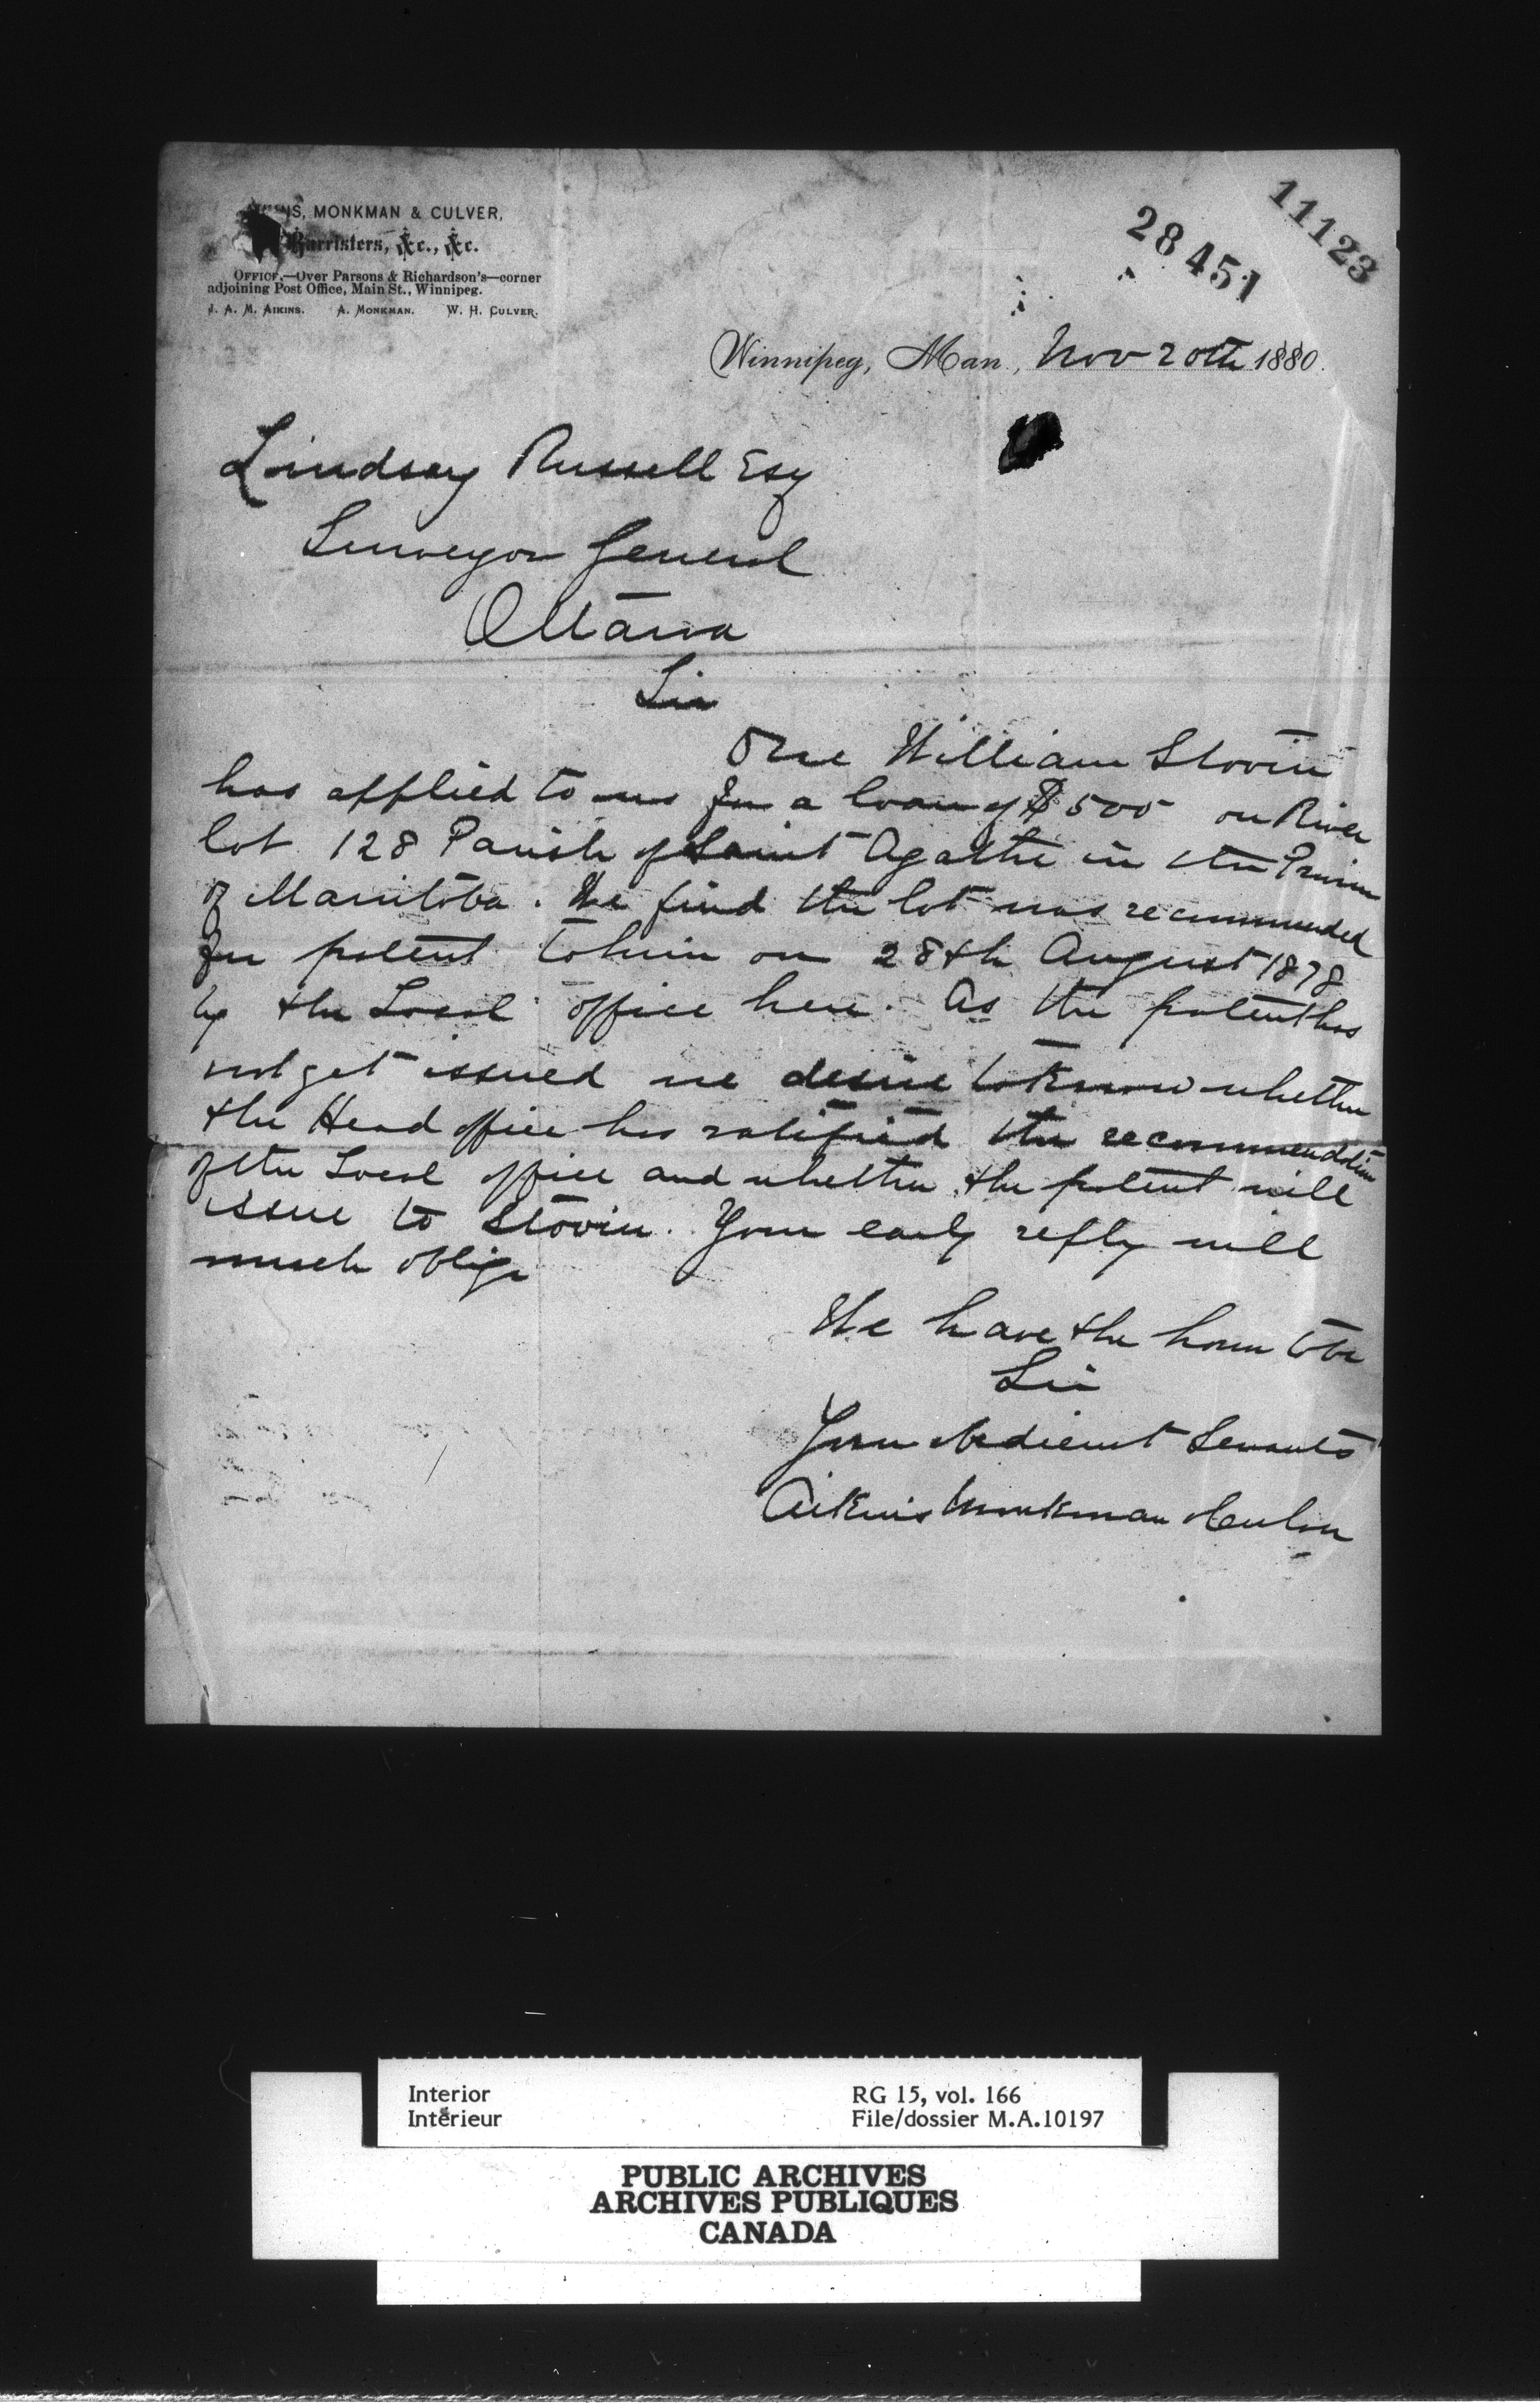 11123
28451
AIKINS, MONKMAN & CULVER,
Barristers, &c., &c.
OFFICE.—Over Parsons & Richardson's—corner
adjoining Post Office, Main St., Winnipeg.
J. A. M. AIKINS. A. MONKMAN. W. H. CULVER.
Winnipeg, Man., Nov 20th 1880.
Lindsay Russell Esq
Surveyor General
Ottawa
Sir
One William Stovin
has applied to us for a loan of $500 on River
lot 128 Parish of Saint Agathe in the Province
of Manitoba. We find the lot was recommended
for patent to him on 28th August 1878
by the Local office here. As the patent has
not yet issued we desire to know whether
the Head office has ratified the recommendation
of the Local office and whether the patent will
issue to Stovin. Your early reply will
much oblige
We have the honor to be
Sir
Your obedient Servants
Aikins Monkman & Culver
Interior
Intérieur
RG 15, vol. 166
File/dossier M.A.10197
PUBLIC ARCHIVES
ARCHIVES PUBLIQUES
CANADA